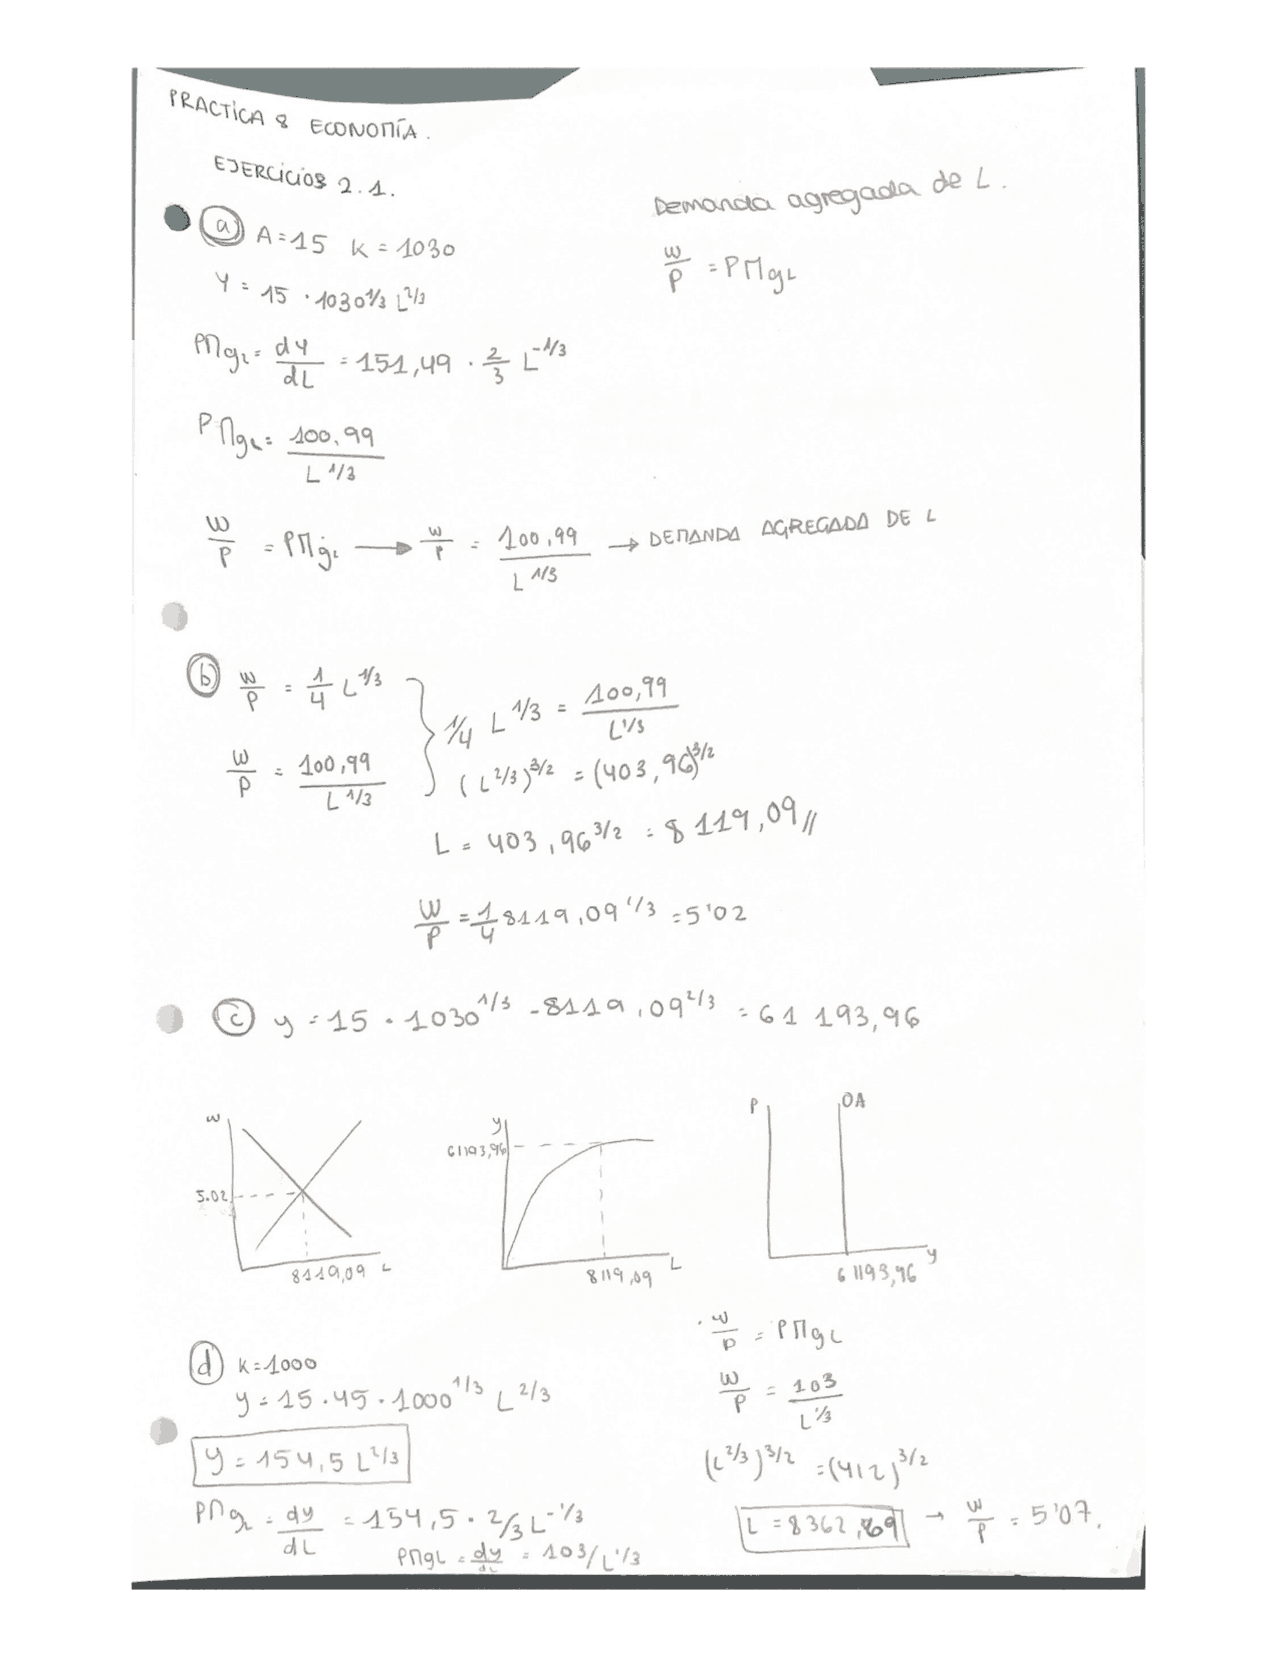 PRACTICA 8 ECONOMÍA.
EJERCICIOS 2.1.
Demanda agregada de L.
a) A=15 K=1030
W/P = PMgL
Y = 15 · 1030^1/3 L^2/3
PMgL = dY/dL = 151,49 · 2/3 L^-1/3
PMgL = 100,99 / L^1/3
W/P = PMgL → W/P = 100,99 / L^1/3 → DEMANDA AGREGADA DE L
b) W/P = 1/4 L^1/3 } 1/4 L^1/3 = 100,99 / L^1/3
W/P = 100,99 / L^1/3
(L^2/3)^3/2 = (403,96)^3/2
L = 403,96^3/2 = 8119,09 //
W/P = 1/4 8119,09^1/3 = 5'02
c) y = 15 · 1030^1/3 - 8119,09^2/3 = 61 193,96
w
5.02
8119,09 L
y
61193,96
8119,09 L
P OA
61193,96 y
d) K=1000
y = 15 · 45 · 1000^1/3 L^2/3
y = 154,5 L^2/3
PMgL = dy/dL = 154,5 · 2/3 L^-1/3
PMgL = dy/dL = 103/L^1/3
· W/P = PMgL
W/P = 103 / L^1/3
(L^2/3)^3/2 = (412)^3/2
L = 8362,69 → W/P = 5'07.